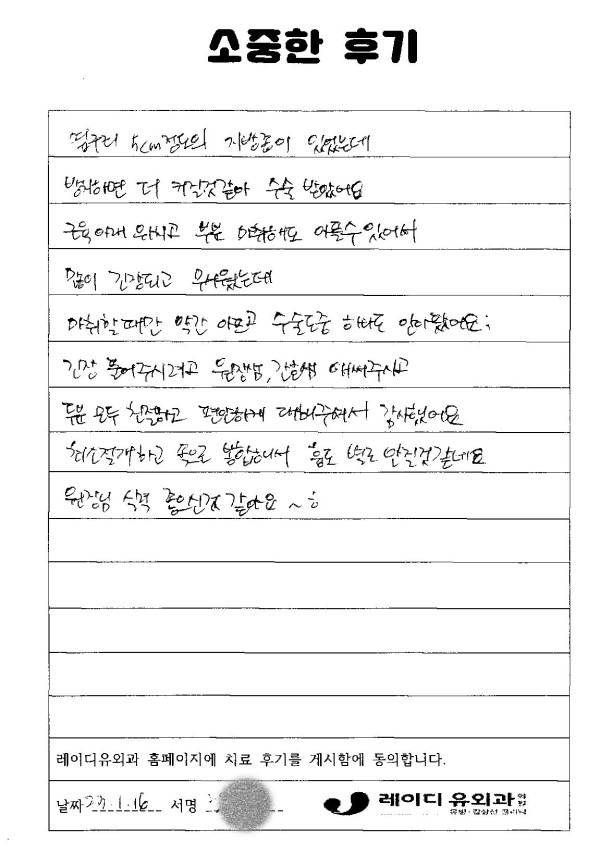 소중한 후기
옆구리 5cm정도의 지방종이 있었는데
방치하면 더 커질것같아 수술 받았어요
근육아래 위치하고 부분 마취해도 아플수있어서
많이 긴장되고 무서웠는데
마취할때만 약간 아프고 수술도중 하나도 안아팠어요;
긴장 풀어주시려고 원장쌤, 간호쌤 애써주시고
두분 모두 친절하고 편안하게 대해주셔서 감사했어요
최소절개하고 속으로 봉합하니까 흉도 별로 안질것같네요
원장님 실력 좋으신것 같아요 ~ ㅎ
레이디유외과 홈페이지에 치료 후기를 게시함에 동의합니다.
날짜 23.1.16 서명
레이디유외과 의원
유방·갑상선 클리닉